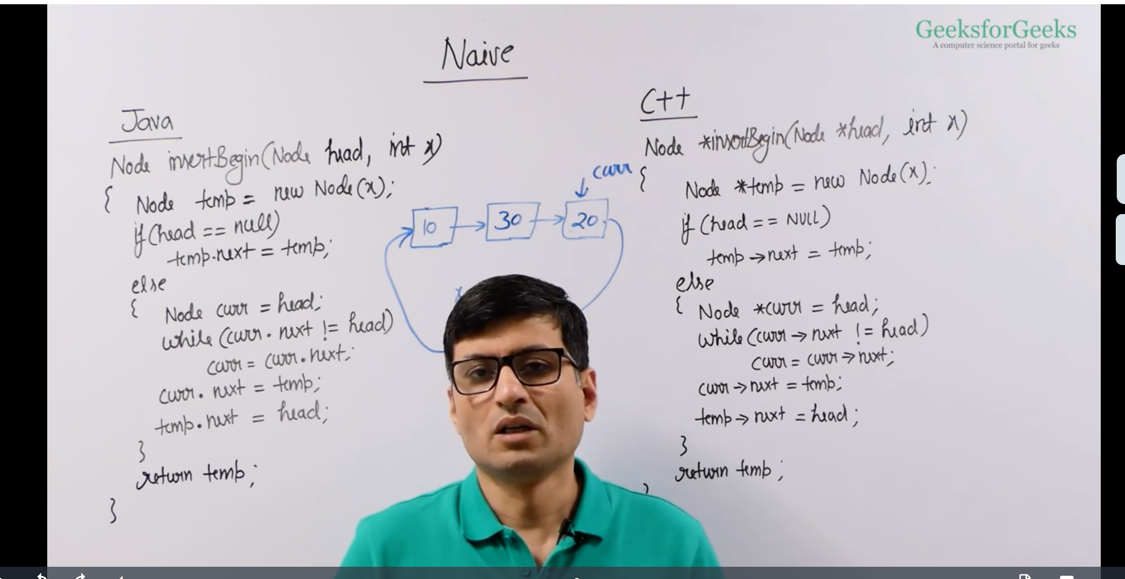 GeeksforGeeks
A computer science portal for geeks
Naive
Java
Node insertBegin(Node head, int x)
{ Node temp = new Node(x);
if(head == null)
temp.next = temp;
else
{ Node curr = head;
while (curr.next != head)
curr = curr.next;
curr.next = temp;
temp.next = head;
}
return temp;
}
curr
10
30
20
C++
Node *insertBegin(Node *head, int x)
{
Node *temp = new Node(x);
if (head == NULL)
temp→next = temp;
else
{ Node *curr = head;
while (curr→next != head)
curr = curr→next;
curr→next = temp;
temp→next = head;
}
return temp;
}